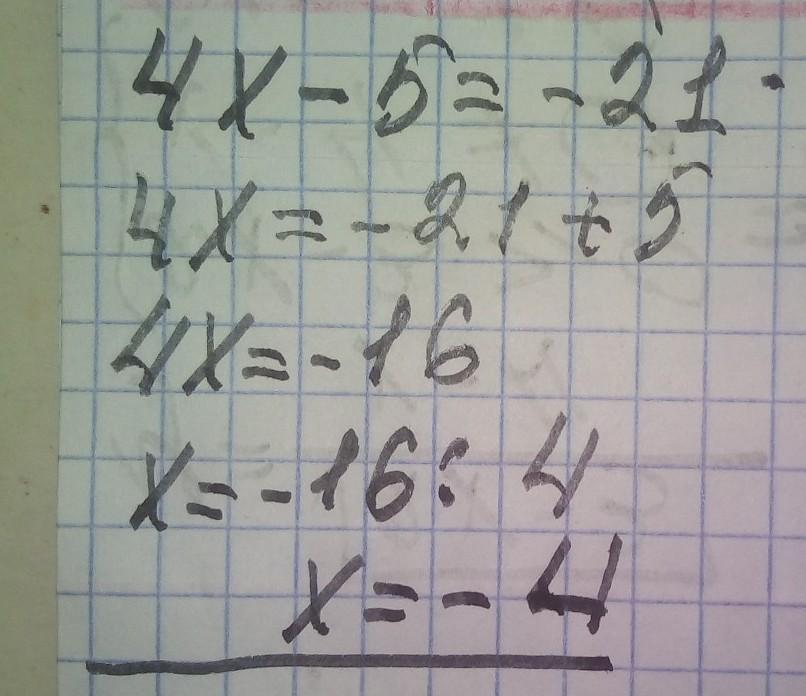 4x - 5 = -21
4x = -21 + 5
4x = -16
x = -16 : 4
x = -4